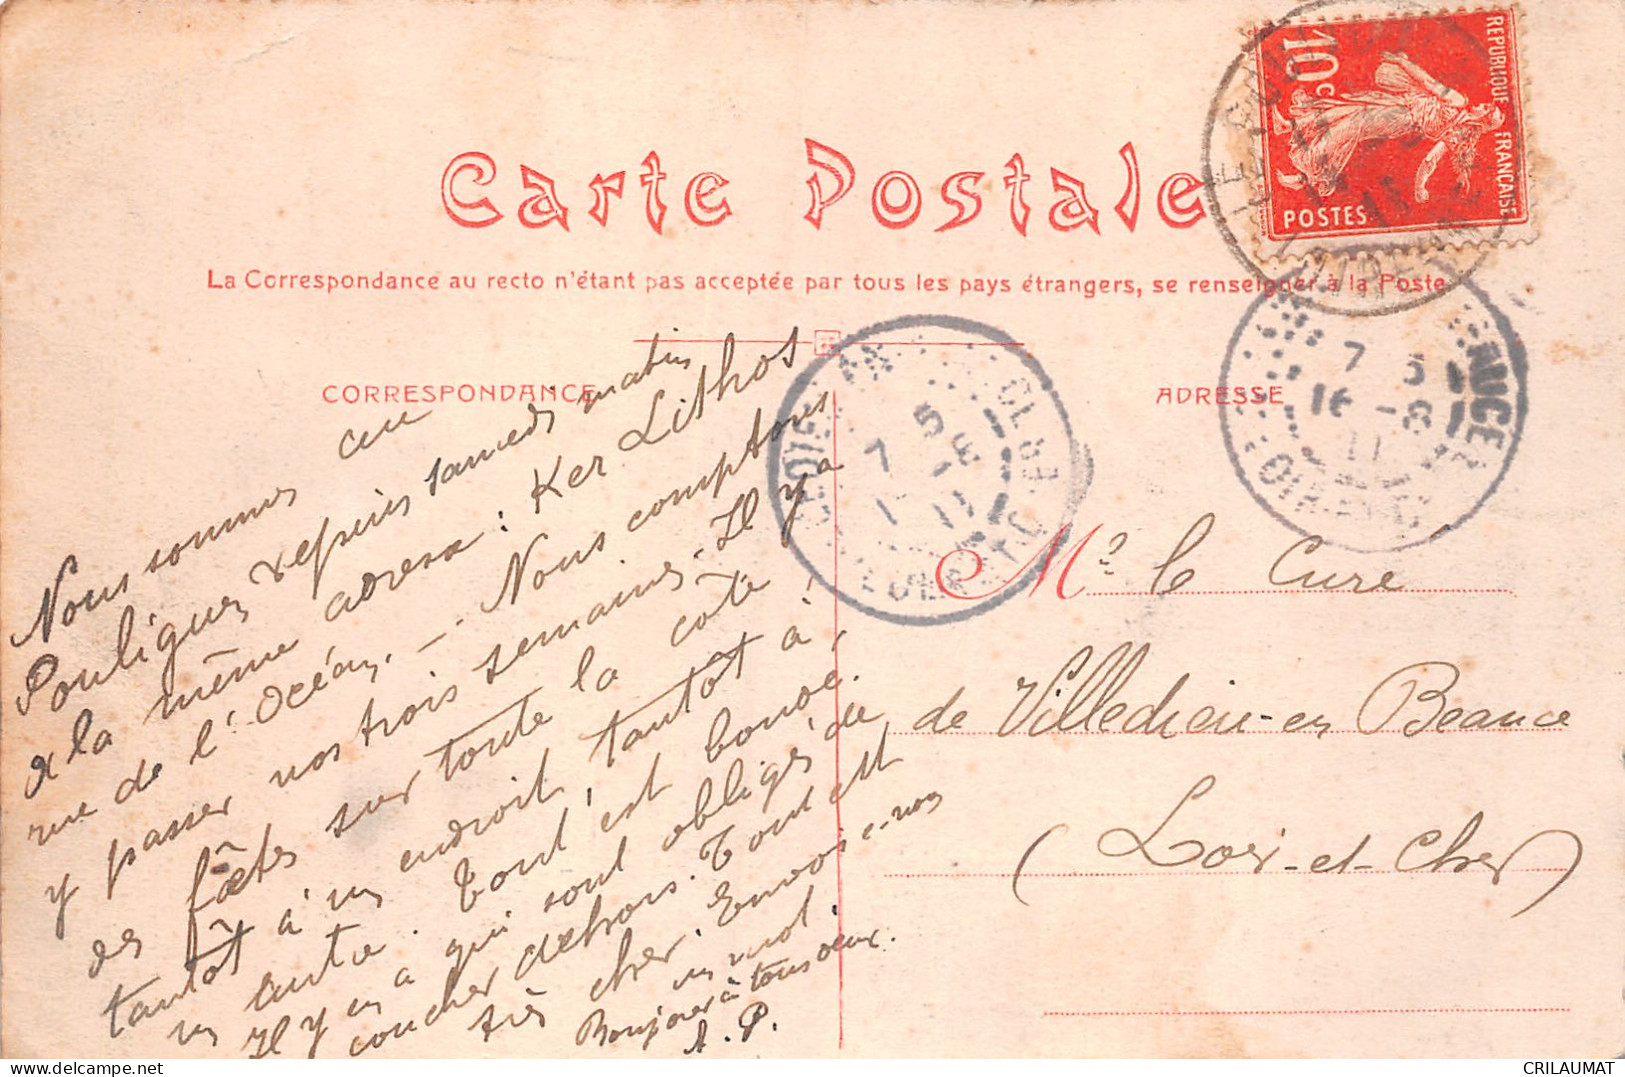 Carte Postale
La Correspondance au recto n'étant pas acceptée par tous les pays étrangers, se renseigner à la Poste
CORRESPONDANCE
ADRESSE
REPUBLIQUE FRANÇAISE
10c
POSTES
Nous sommes au
Pouliguen depuis samedi matin
à la même adresse : Ker Lithos
rue de l'Océan. - Nous comptons
y passer nos trois semaines. Il y a
des fêtes sur toute la côte !
tantôt à un endroit, tantôt à
un autre. Tout est bondé.
Il y en a qui sont obligés de
coucher dehors. Tout est
très cher. Envoie-nous
un mot.
Bonjour à tous deux.
A. P.
7 5
16 -8
11
OUCQUES
LOIR-ET-CHER
Mr le Curé
de Villedieu-en Beauce
(Loir-et-Cher)
CRILAUMAT